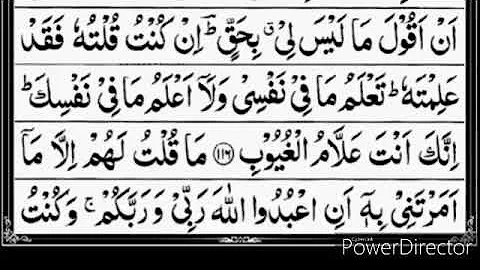 اَنْ اَقُوْلَ مَا لَيْسَ لِيْ ۗ بِحَقٍّ ؕ اِنْ كُنْتُ قُلْتُهٗ فَقَدْ
عَلِمْتَهٗ ؕ تَعْلَمُ مَا فِيْ نَفْسِيْ وَلَاۤ اَعْلَمُ مَا فِيْ نَفْسِكَ ؕ
اِنَّكَ اَنْتَ عَلَّامُ الْغُيُوْبِ ﴿۱۱۶﴾ مَا قُلْتُ لَهُمْ اِلَّا مَاۤ
اَمَرْتَنِيْ بِهٖۤ اَنِ اعْبُدُوا اللّٰهَ رَبِّيْ وَرَبَّكُمْ ۚ وَكُنْتُ
PowerDirector